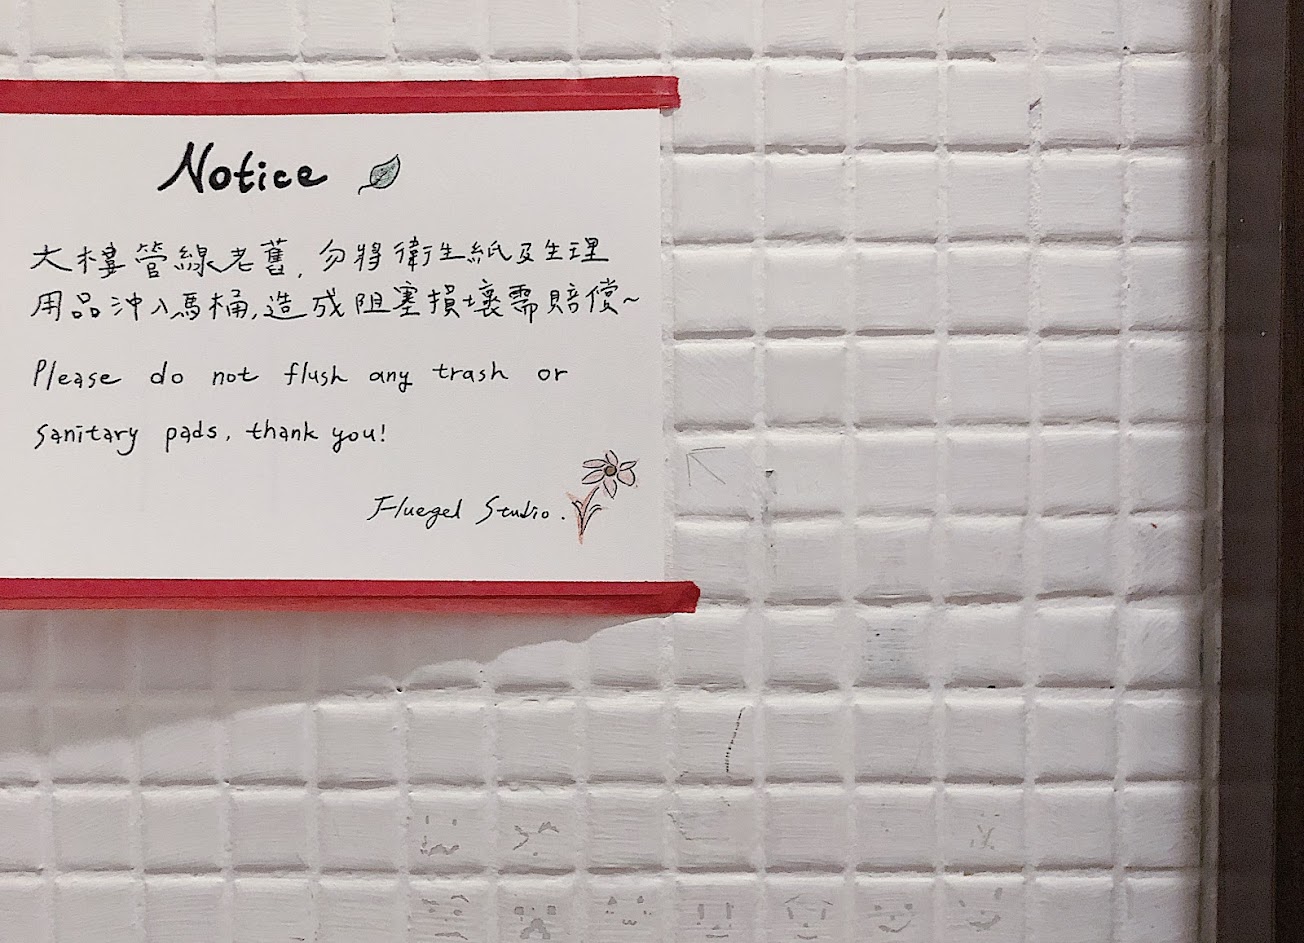 Notice
大樓管線老舊,勿將衛生紙及生理
用品沖入馬桶,造成阻塞損壞需賠償~
Please do not flush any trash or
sanitary pads, thank you!
Fluegel Studio.